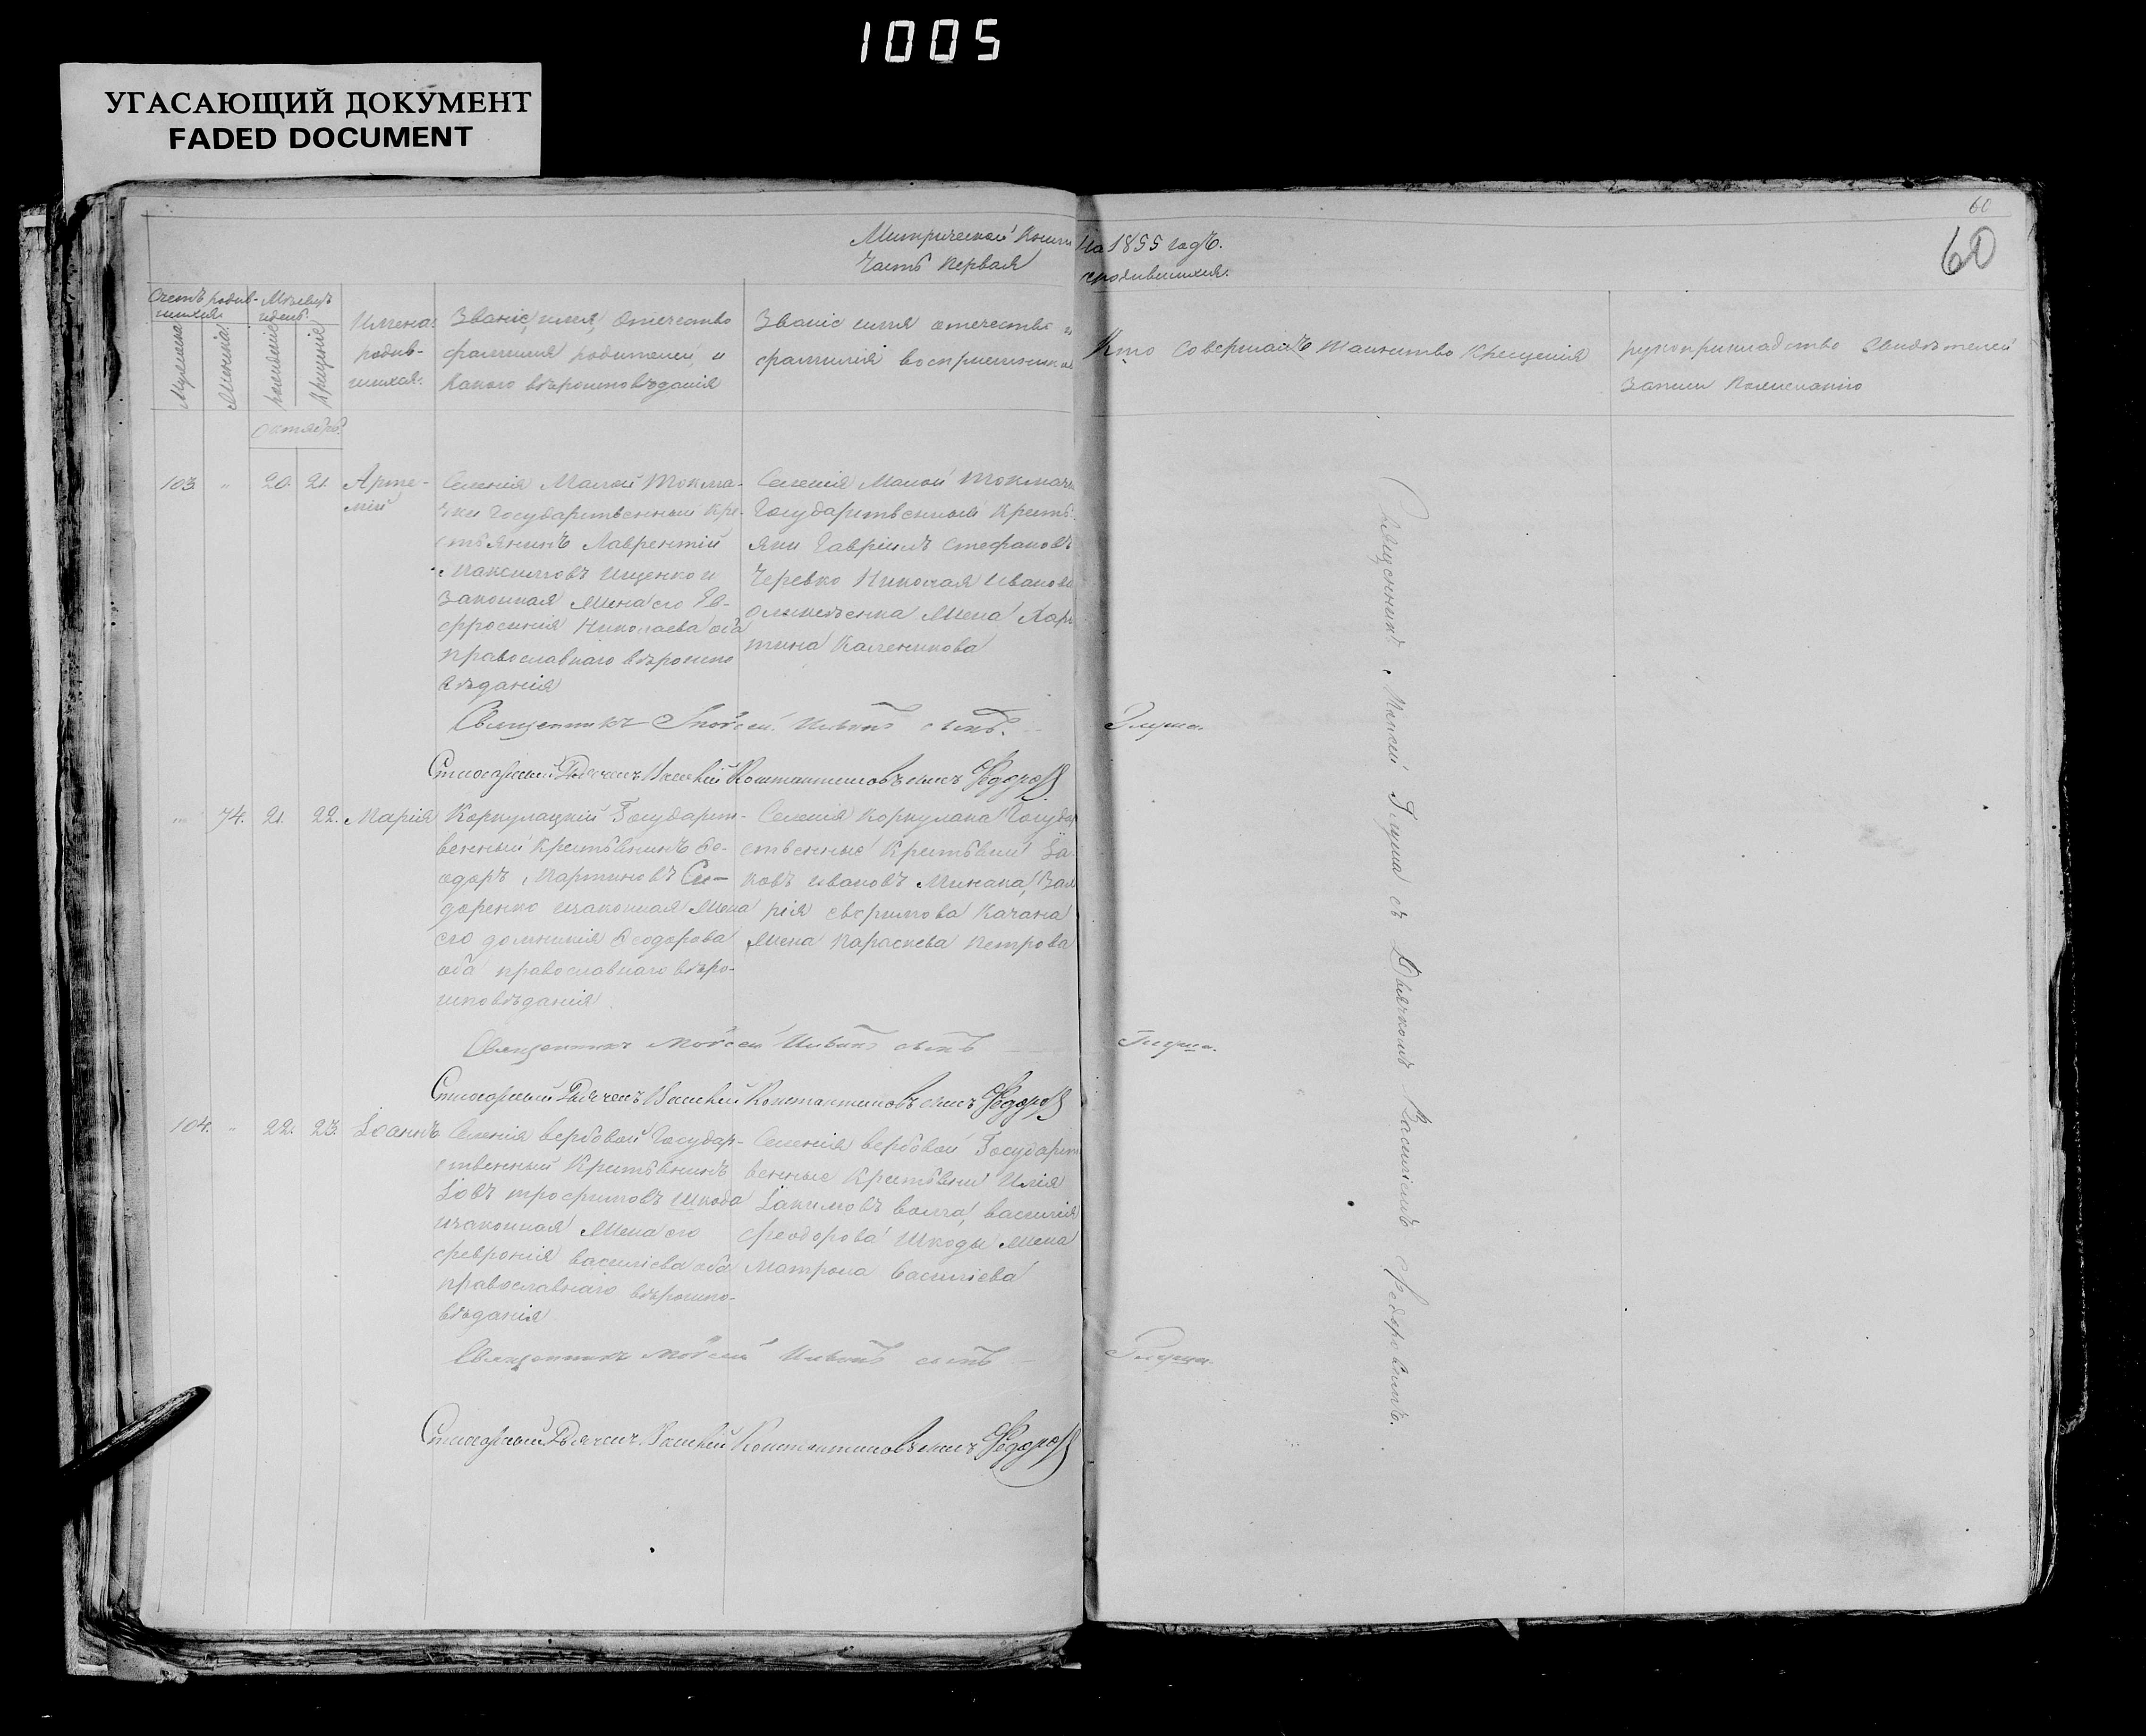 1005
УГАСАЮЩИЙ ДОКУМЕНТ
FADED DOCUMENT
60
60
Метрической Книги На 1855 годъ.
Часть Первая
Счетъ родив-
шихся.
Мѣсяцъ
и день.
Мужеска
Женска
рожденіе
Крещеніе
Имена
родив-
шихся.
Званіе, имя, Отечество
фамилия родителей, и
Какого вѣроисповѣданія
Званіе имя отечество и
фамилія воспріемников
Кто Совершалъ таинство Крещенія
рукоприкладство Свидѣтелей
записи
Октябрь.
103. " 20. 21. Арте-
мій
Селенія Малой Токма-
чки Государственный Кре-
стьянинъ Лаврентій
Максимовъ Ищенко и
Законная Жена его Ев-
фросинія Николаева оба
православнаго вѣроиспо
вѣданія
Селенія Малой Токмачки
Государственные Кресть
яни Гавріилъ Стефановъ
Черевко Николая Иванова
Жена Хари
тина Каленикова
Священникъ Мойсей Ильинъ сынъ. Глуша.
Стихарный Дьячекъ Василій Константиновъ сынъ Федоров
" 74. 21. 22. Марія
Коркулацкій Государст-
венный Крестьянинъ Ѳе-
одоръ Мартиновъ Си-
доренко изаконная Жена
его домникія Ѳеодорова
оба православнаго вѣро-
исповѣданія
Селенія Коркулака Государ
ственные Крестьяни Іа
ковъ Ивановъ Минака, Вал
рія Ефримова Качана
Жена Параскева Петрова
Священникъ Мойсей Ильинъ сынъ Глуша.
Стихарный Дьячекъ Василій Константиновъ сынъ Федоров
104. " 22. 23. Іоаннъ
Селенія вербовой Государ-
ственный Крестьянинъ
Іовъ трофимовъ Шкода
изаконная Жена его
феврония василіева оба
православнаго вѣроиспо-
вѣданія
Селенія вербовой Государст
венные Крестьяни Илія
Іакимовъ волга, василія
феодорова Шкоды Жена
Матрона Василіева
Священникъ Мойсей Ильинъ сынъ Глуша.
Стихарный Дьячекъ Василій Константиновъ сынъ Федоров
Священникъ Моисей Глуша съ Дьячкомъ Василіемъ Федоровимъ.